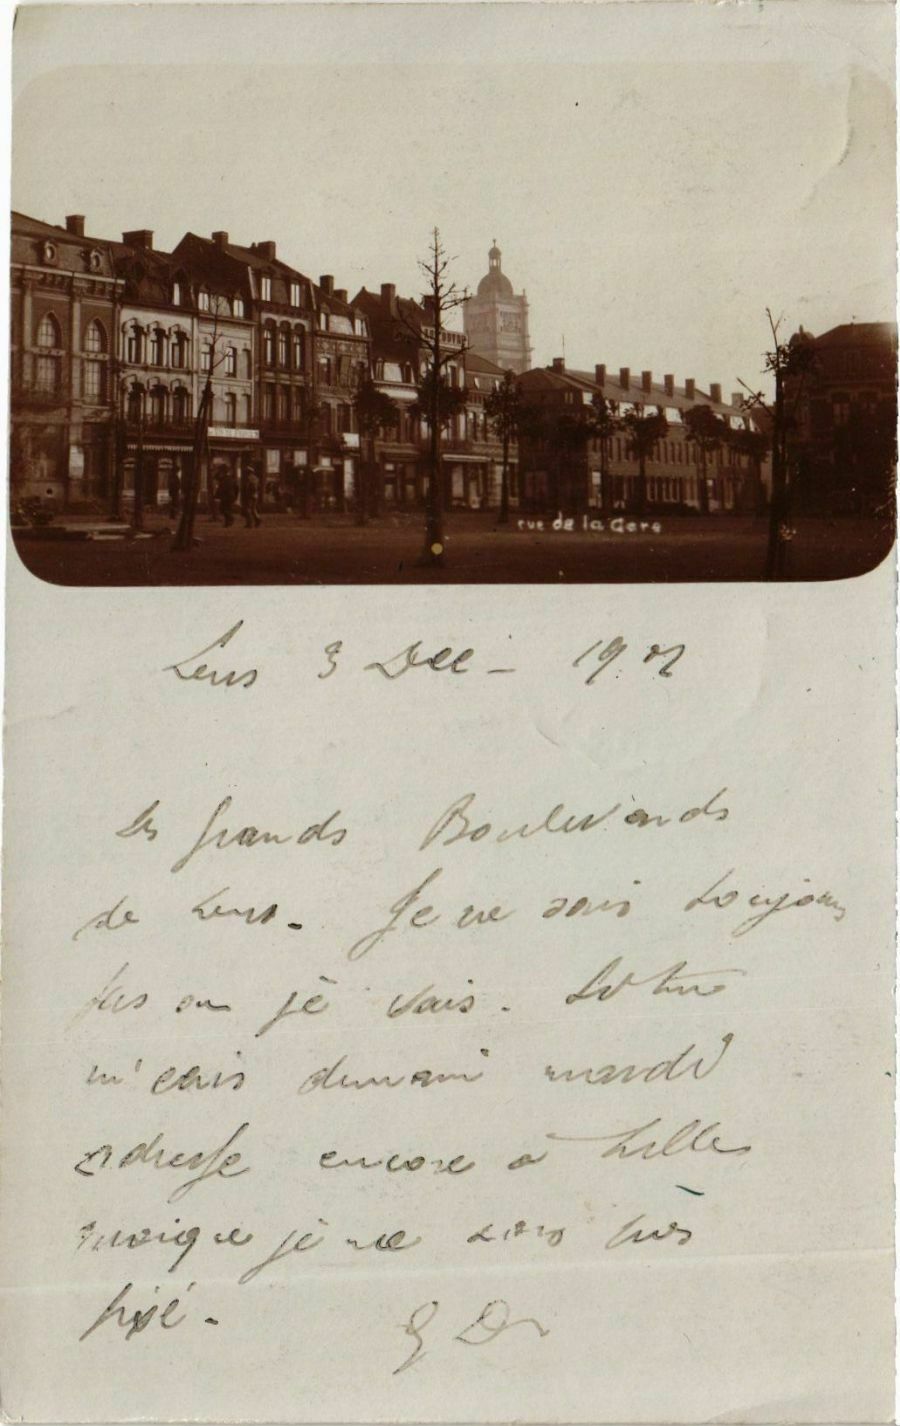 rue de la Gare
Lens 3 Déc - 1901
Les grands Boulevards
de Lens. Je ne sais toujours
pas où je vais. Si tu
m'écris demain mardi
adresse encore à Lille
puisque je ne suis pas
fixé.